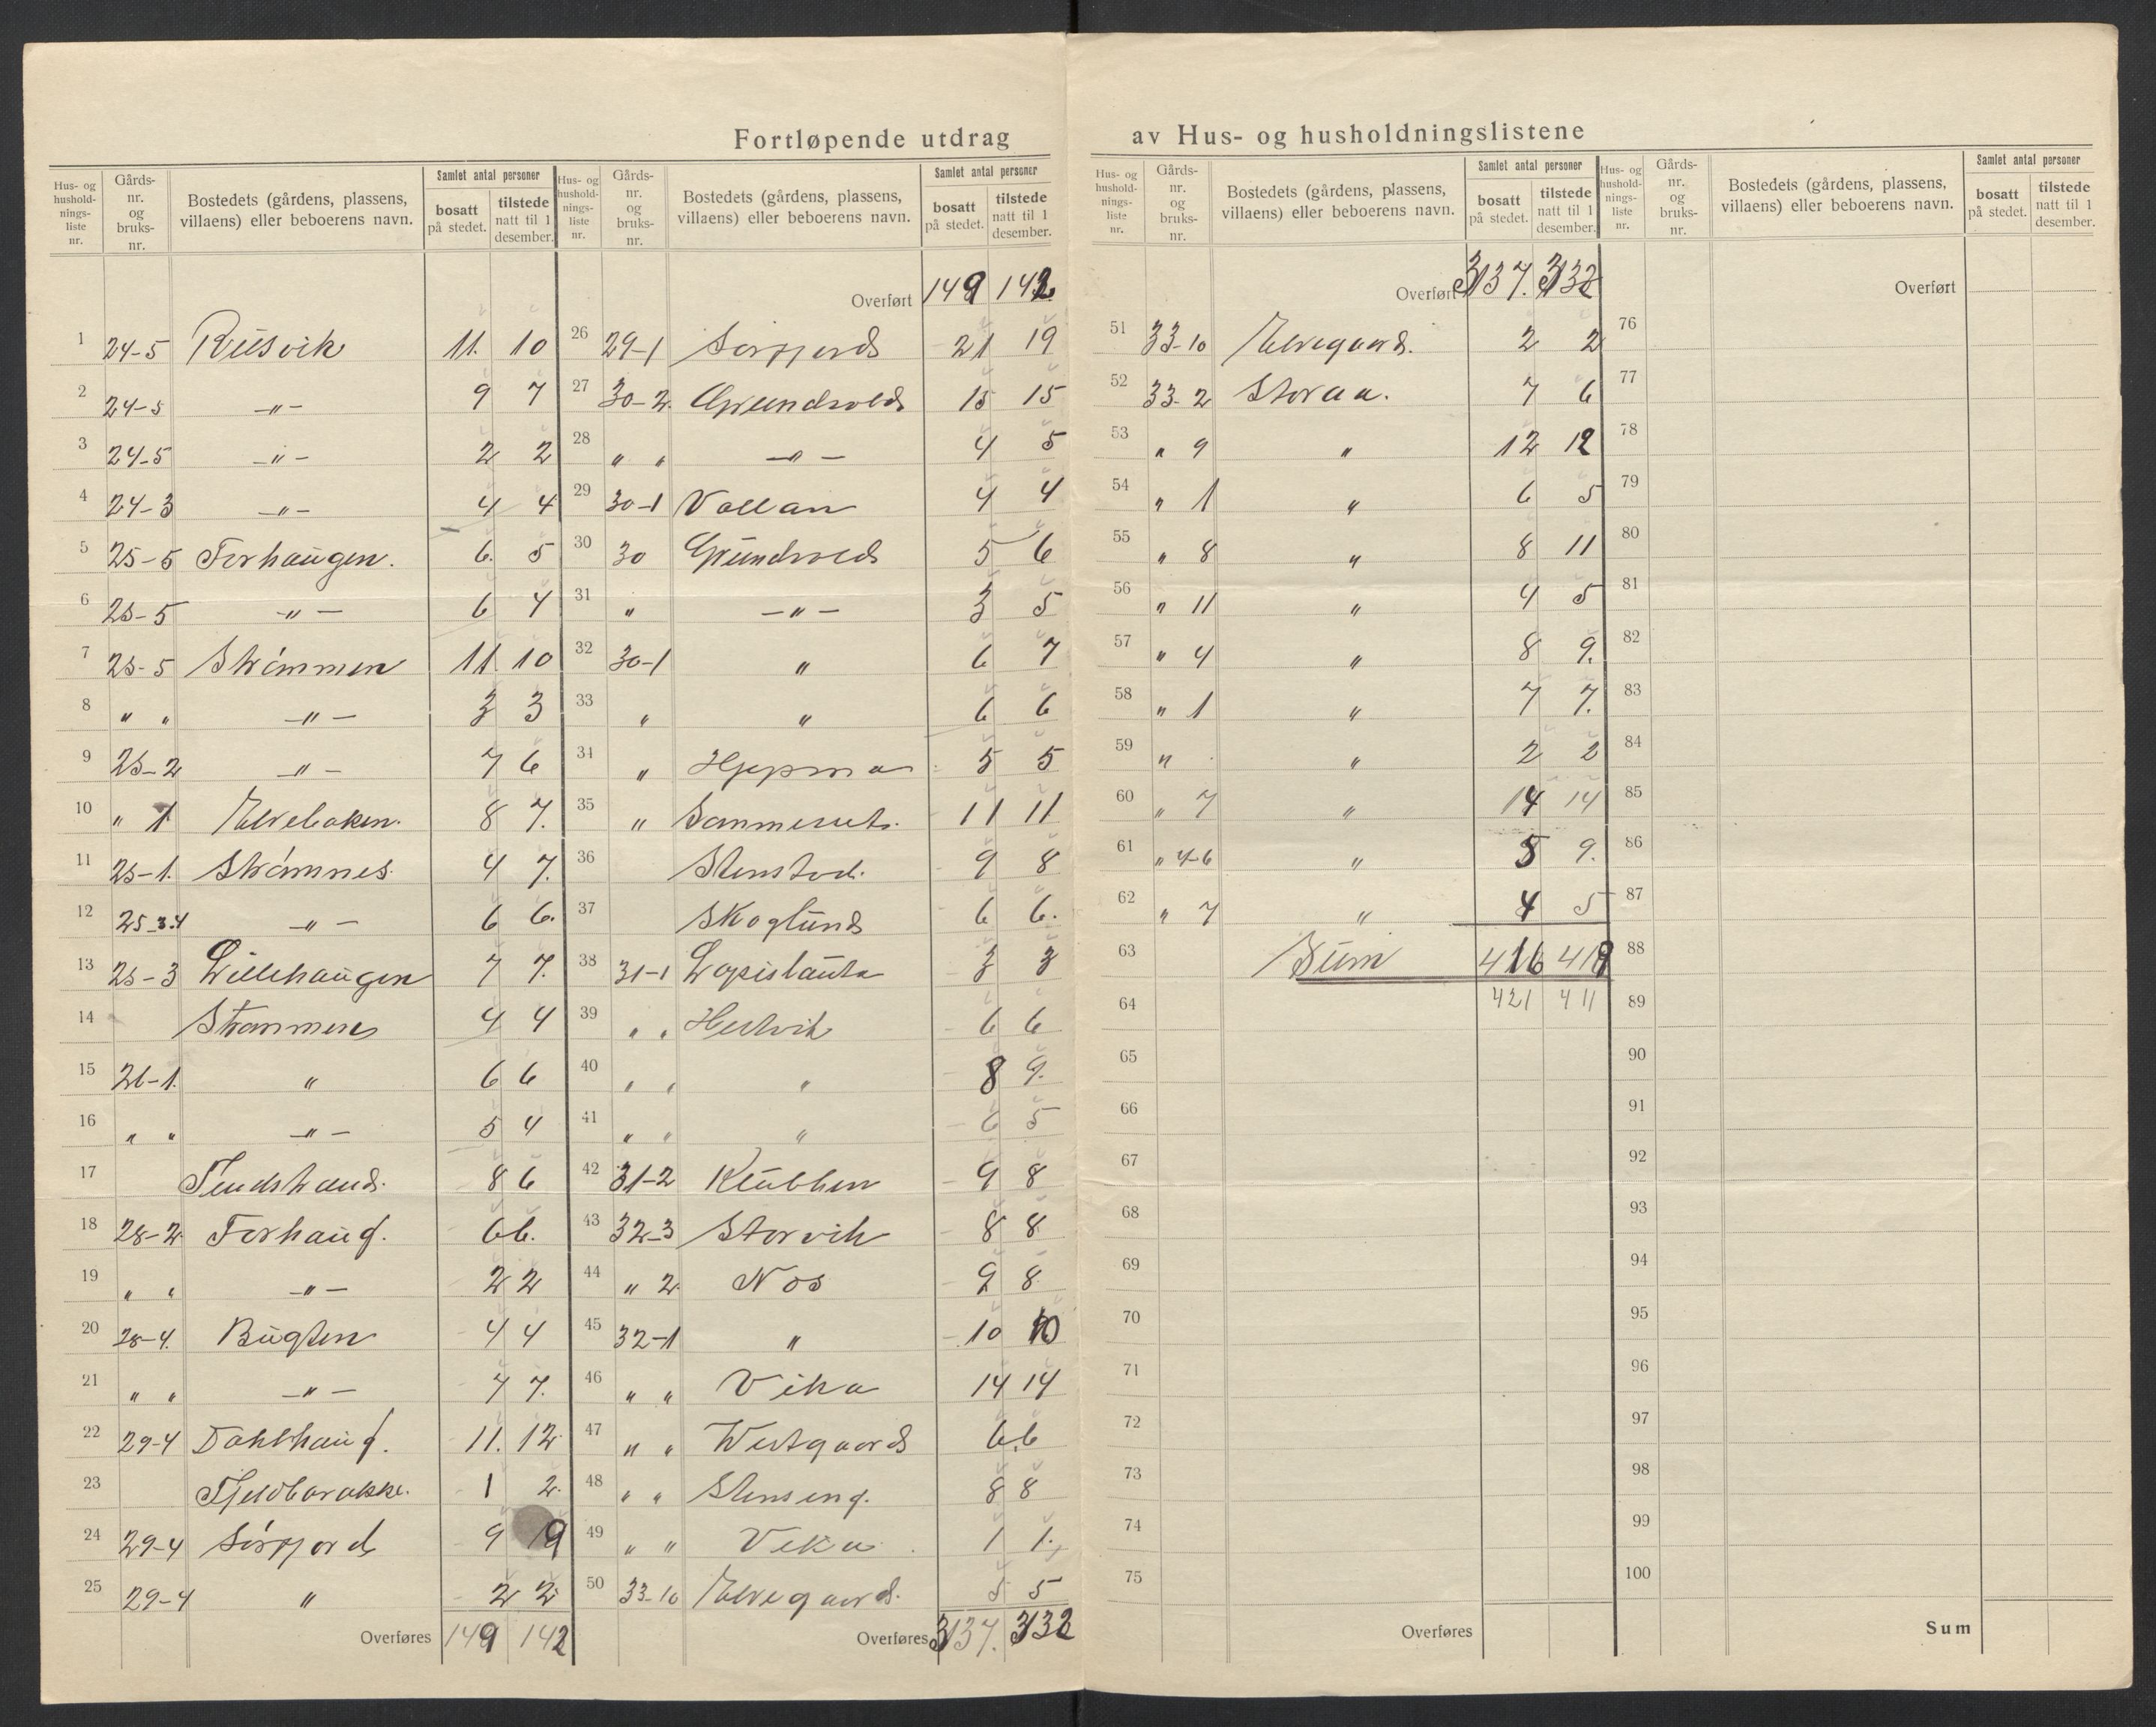 Fortløpende utdrag av Hus- og husholdningslistene
Hus- og husholdningsliste nr. | Gårdsnr. og bruksnr. | Bostedets (gårdens, plassens, villaens) eller beboerens navn. | Samlet antal personer | bosatt på stedet. | tilstede natt til 1 desember.
1 24-5 Rusvik 11. 10
2 24-5 -"- 9 7
3 24-5 -"- 2 2
4 24-3 -"- 4 4
5 25-5 Forhaugen. 6. 5
6 25-5 -"- 6 4
7 25-5 Strømmen 11. 10
8 " " -"- 3 3
9 25-2 -"- 7 6
10 " 1 Elvebaken. 8 7.
11 25-1. Strømnes. 4 7.
12 25-3.4 -"- 6 6.
13 25-3 Lillehaugen 7 7.
14 Strømmen 4 4
15 26-1. " 6 6
16 " " -"- 5 4
17 8 6
18 28-2 Forhaug. 6 6.
19 " " -"- 2 2
20 28-4. Bugten 4 4
21 " " -"- 7 7.
22 29-4 Dahlhaug. 11. 12
23 Fjeldbarakke. 1 2.
24 29-4 Sørfjord 9 9
25 29-4 " 2 2
Overføres 149 142
Hus- og husholdningsliste nr. | Gårdsnr. og bruksnr. | Bostedets (gårdens, plassens, villaens) eller beboerens navn. | Samlet antal personer | bosatt på stedet. | tilstede natt til 1 desember.
Overført 149 142
26 29-1 Sørfjord 21 19
27 30-2. Grundvold 15 15
28 " " -"- 4 5
29 30-1 Vollan 4 4
30 30 Grundvold 5 6
31 " -"- 3 5
32 30-1 " 6 7
33 " " 6 6
34 " 5 5
35 " Sommerset. 11 11
36 9 8
37 Skoglund 6 6.
38 31-1 3 3
39 " " Hestvik 6 6
40 " " " 8 9.
41 " " " 6 5
42 31-2 Klubben 9 8
43 32-3 Storvik 8 8
44 " 2. Nos 9 8.
45 32-1 " 10 10
46 " " Vika 14 14
47 " " Westgaard 6 6
48 " " Stenseng. 8 8
49 " " Vika 1 1.
50 33-10 Elvegaard. 5 5
Overføres 3137. 3132
Hus- og husholdningsliste nr. | Gårdsnr. og bruksnr. | Bostedets (gårdens, plassens, villaens) eller beboerens navn. | Samlet antal personer | bosatt på stedet. | tilstede natt til 1 desember.
Overført 3137. 3132
51 33-10 Elvegaard. 2 2
52 33-2 Storaa. 7 6
53 " 9 " 12 12
54 " 1 " 6 5
55 " 8 " 8 11
56 " 11 " 4 5
57 " 4 " 8 9.
58 " 1 " 7 7.
59 " " 2 2
60 " 7 " 14 14
61 " 4-6 " 5 9.
62 " 7 " 4 5
63 Sum 416 419
64 421 411
65
66
67
68
69
70
71
72
73
74
75
Overføres
Hus- og husholdningsliste nr. | Gårdsnr. og bruksnr. | Bostedets (gårdens, plassens, villaens) eller beboerens navn. | Samlet antal personer | bosatt på stedet. | tilstede natt til 1 desember.
Overført
76
77
78
79
80
81
82
83
84
85
86
87
88
89
90
91
92
93
94
95
96
97
98
99
100
Sum